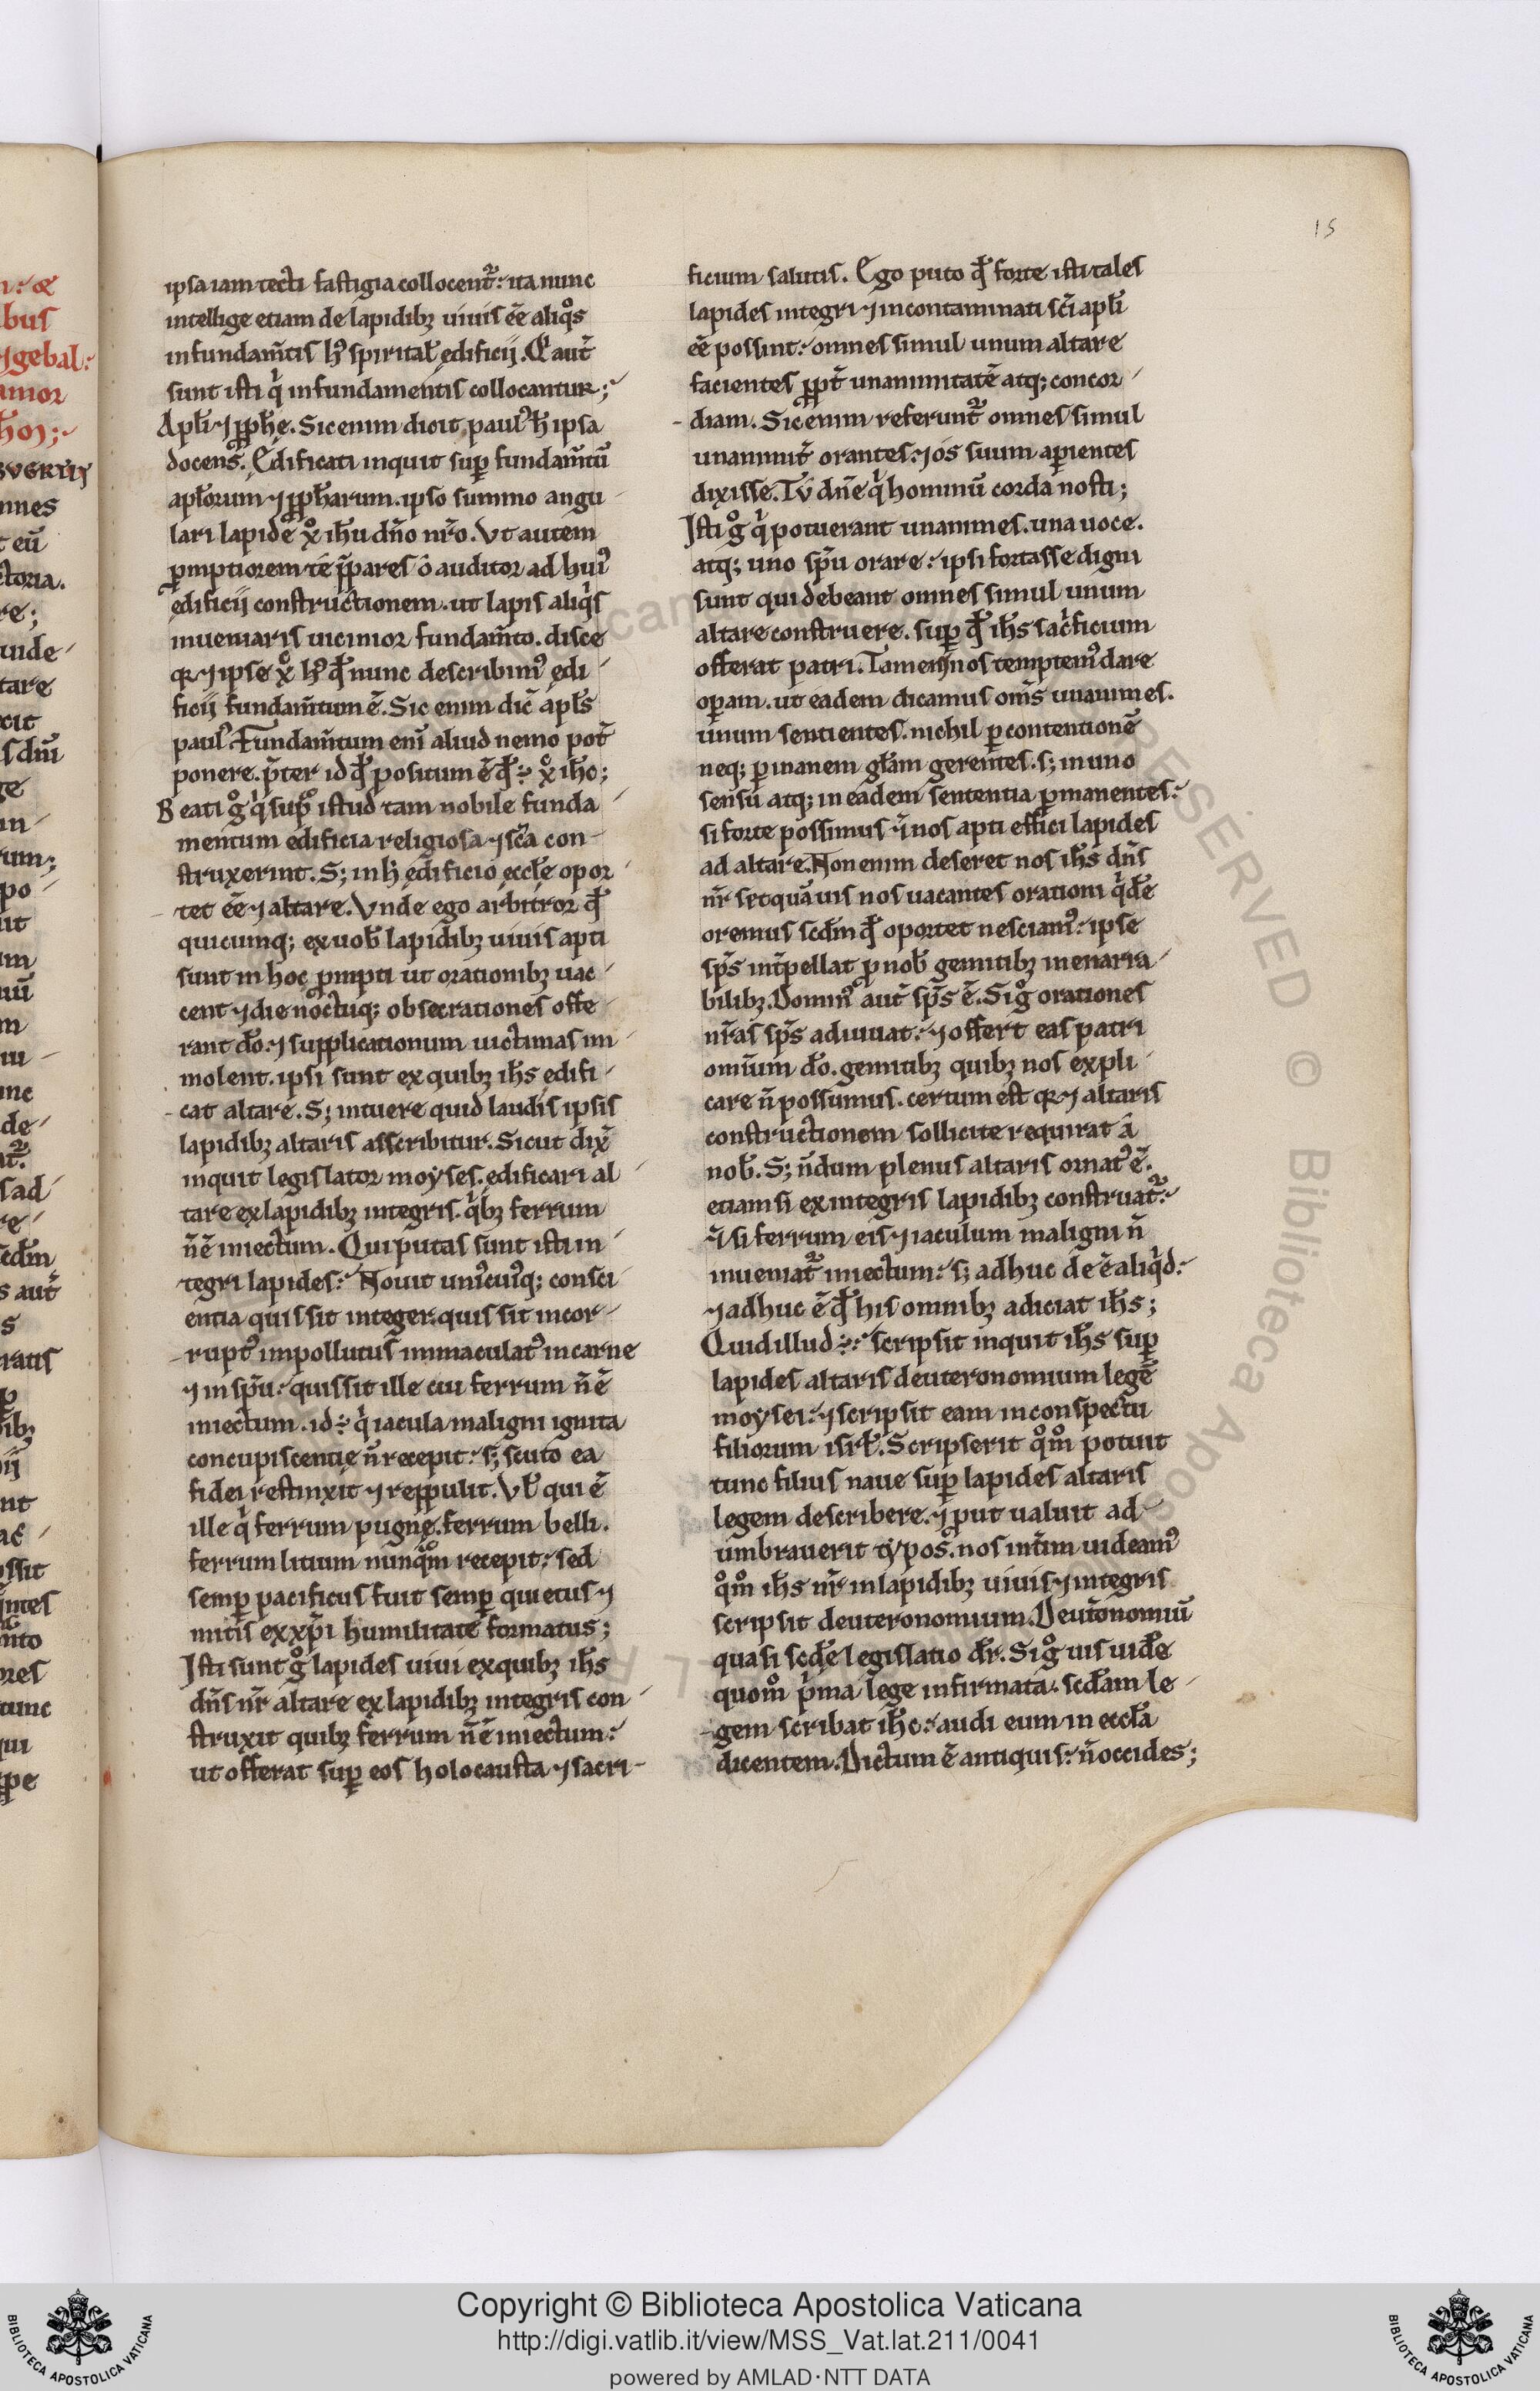 15
ipsa iam tecti fastigia collocent᷑. ita nunc
intellige etiam de lapidibꝫ uiuis ēe aliqͦs
in fundam̄tis hꝰ spirital̄ ędificij. Q aut̄
sunt isti qͥ in fundamentis collocantur;
Apl̄i ⁊ ꝓph̄ę. Sic enim dicit paulꝰ h̄ ipsa
docens. Ędificati inquit suꝑ fundam̄tū
apl̄orum ⁊ ꝓph̄arum. ipso summo angu
lari lapide xͦ ih̄u dn̄o nr̄o. Vt autem
ꝓmptiorem te p̄pares o auditor ad huiꝰ
ędificij constructionem. ut lapis aliqͥs
inueniaris uicinior fundam̄to. disce
qꝛ ⁊ ipse xͦ hꝰ qđ nunc describimꝰ ędi
ficij fundam̄tum ē. Sic enim dic̄ apl̄s
paulꝰ. Fundam̄tum eni᷑ aliud nemo pot̄
ponere. p̄ter id qđ positum ē qđ ÷ xͦ ih̄c;
Beati gͦ qͥ supͦ istud tam nobile funda
mentum edificia religiosa ⁊ sc̄a con
struxerint. S; in h̄ ędificio ęccl̄e opor
tet ēe ⁊ altare. Vnde ego arbitror qđ
quicumq; ex uob̄ lapidibꝫ uiuis apti
sunt in hoc ꝓmpti ut orationibꝫ uac
cent ⁊ die noctuq; obsecrationes offe
rant dō. ⁊ supplicationum uictimas im
molent. ipsi sunt ex quibꝫ ih̄s ędifi
cat altare. S; intuere quid laudis ipsis
lapidibꝫ altaris asscribitur. Sicut dix̄
inquit legislator moyses. ędificari al
tare ex lapidibꝫ integris. qͥbꝫ ferrum
n̄ ē iniectum. Qui putas sunt isti in
tegri lapides? Nouit uniͥcuiꝰq; consci
entia quis sit integer. quis sit incor
ruptꝰ impollutus immaculatꝰ in carne
⁊ in sp̄u. quis sit ille cui ferrum n̄ ē
iniectum. id ÷ qͥ iacula maligni ignita
concupiscentię n̄ recepit. s; scuto ea
fidei restinxit ⁊ reppulit. Vl̄ qui ē
ille qͥ ferrum pugnę. ferrum belli.
ferrum litium nunqͣm recepit. sed
semꝑ pacificus fuit semꝑ quietus ⁊
mitis ex xp̄i humilitate formatus;
Isti sunt gͦ lapides uiui ex quibꝫ ih̄s
dn̄s nr̄ altare ex lapidibꝫ integris con
struxit quibꝫ ferrum n̄ ē iniectum.
ut offerat suꝑ eos holocausta ⁊ sacri
ficium salutis. Ego puto qđ forte isti tales
lapides integri ⁊ incontaminati sc̄i apl̄i
ēe possint. omnes simul unum altare
facientes ꝓpt̄ unanimitatē atq; concor
diam. Sic enim referunt᷑ omnes simul
unanimit̄ orantes. ⁊ os suum aperientes
dixisse. Tu dn̄e qͥ hominū corda nosti;
Isti gͦ qͥ potuerant unanimes. una uoce.
atq; uno sp̄u orare. ipsi fortasse digni
sunt qui debeant omnes simul unum
altare construere. suꝑ qđ ih̄s sacͥficium
offerat patri. Tamen ⁊ nos temptemꝰ dare
oꝑam. ut eadem dicamus om̄s unanimes.
unum sentientes. nichil ꝑ contentionē
neq; ꝑ inanem gl̄am gerentes. s; in uno
sensu atq; in eadem sententia ꝑmanentes.
si forte possimus ⁊ nos apti effici lapides
ad altare. Non enim deseret nos ih̄s dn̄s
nr̄ set quāuis nos uacantes orationi qͥd̄e
oremus scd̄m qđ oportet nesciamꝰ. ipse
sp̄s int̄pellat ꝓ nob̄ gemitibꝫ inenaria
bilibꝫ. Dominꝰ aut̄ sp̄s ē. Si gͦ orationes
nr̄as sp̄s adiuuat. ⁊ offert eas patri
omium dō. gemitibꝫ quibꝫ nos expli
care n̄ possumus. certum est qꝛ ⁊ altaris
constructionem sollicite requirat a
nob̄. S; n̄dum plenus altaris ornatꝰ ē.
etiam si ex integris lapidibꝫ construat᷑.
⁊ si ferrum eis ⁊ iaculum maligni n̄
inueniat᷑ iniectum. s; adhuc de ē aliqͥd.
⁊ adhuc ē qđ his omnibꝫ adiciat ih̄s;
Quid illud ÷? scripsit inquit ih̄s suꝑ
lapides altaris deuteronomium legē
moysei. ⁊ scripsit eam in conspectu
filiorum isrl̄. Scripserit qͦmͦ potuit
tunc filius naue suꝑ lapides altaris
legem describere. ⁊ ꝓut ualuit ad
umbrauerit typos. nos int̄im uideamꝰ
qͦmͦ ih̄s nr̄ in lapidibꝫ uiuis ⁊ integris
scripsit deuteronomium. Deut̄onomiū
quasi scd̄e legislatio dr̄. Si gͦ uis uid̄e
quomͦ pͥma lege infirmata. scd̄am le
gem scribat ih̄c. audi eum in eccl̄a
dicentem. Dictum ē antiquis. n̄ occides;
Copyright © Biblioteca Apostolica Vaticana
http://digi.vatlib.it/view/MSS_Vat.lat.211/0041
powered by AMLAD·NTT DATA
BIBLIOTECA APOSTOLICA VATICANA
BIBLIOTECA APOSTOLICA VATICANA